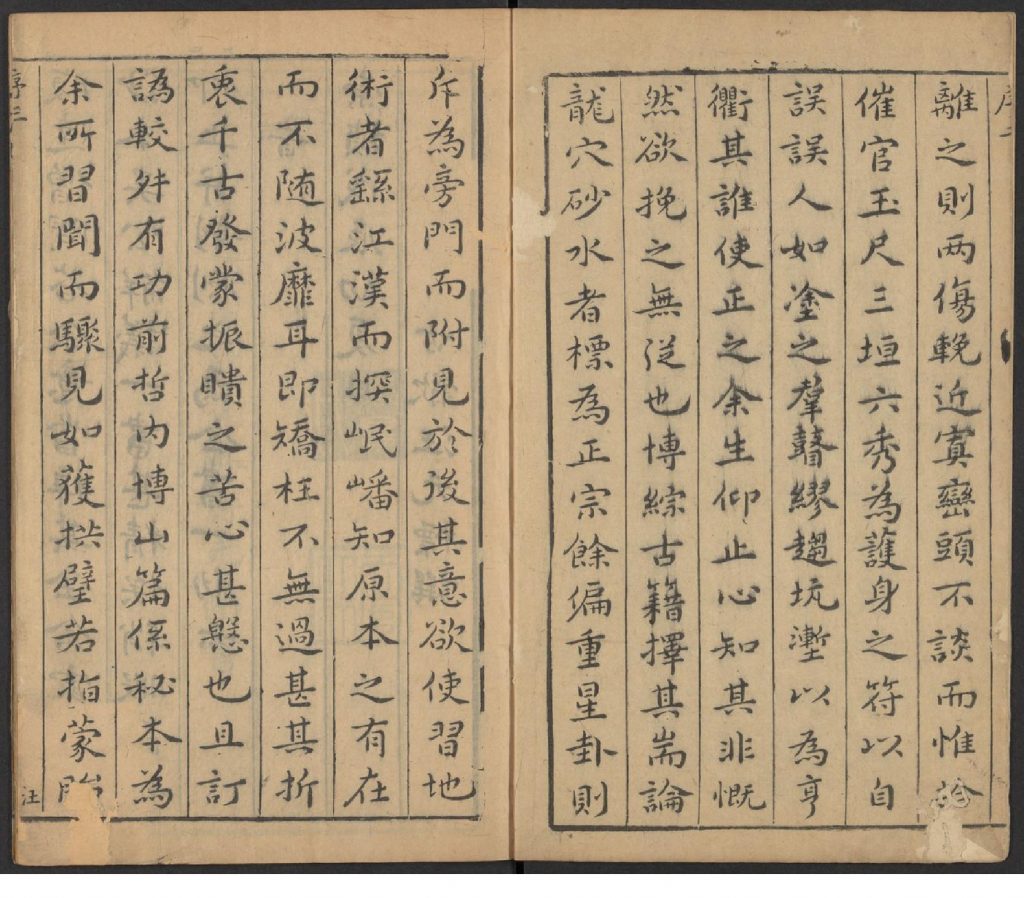 序二
離之則两傷輓近寘巒頭不談而惟
催官玉尺三垣六秀為護身之符以自
誤誤人如塗之羣瞽繆趨坑壍以為亨
衢其誰使正之余生仰止心知其非慨
然欲挽之無従也博綜古籍擇其耑論
龍穴砂水者標為正宗餘偏重星卦則
斥為旁門而附見於後其意欲使習地
術者繇江漢而探岷嶓知原本之有在
而不随波靡耳即矯枉不無過甚其折
衷千古發蒙振瞶之苦心甚懸也且訂
譌較舛有功前哲内博山篇係秘本為
余所習聞而驟見如獲拱璧若指蒙
序三
汪